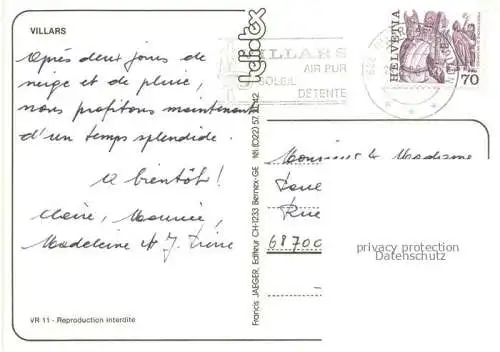 VILLARS
Après deux jours de
neige et de pluie,
nous profitons maintenant
d'un temps splendide.
A bientôt!
Claire, Maurice,
Madeleine et J.
heliotex
Francis JAEGER, Editeur CH-1233 Bernex-GE Tél. (022) 57
VILLARS
AIR PUR
SOLEIL
DETENTE
HELVETIA
70
Monsieur et Madame
Rue
68700
privacy protection
VR 11 - Reproduction interdite